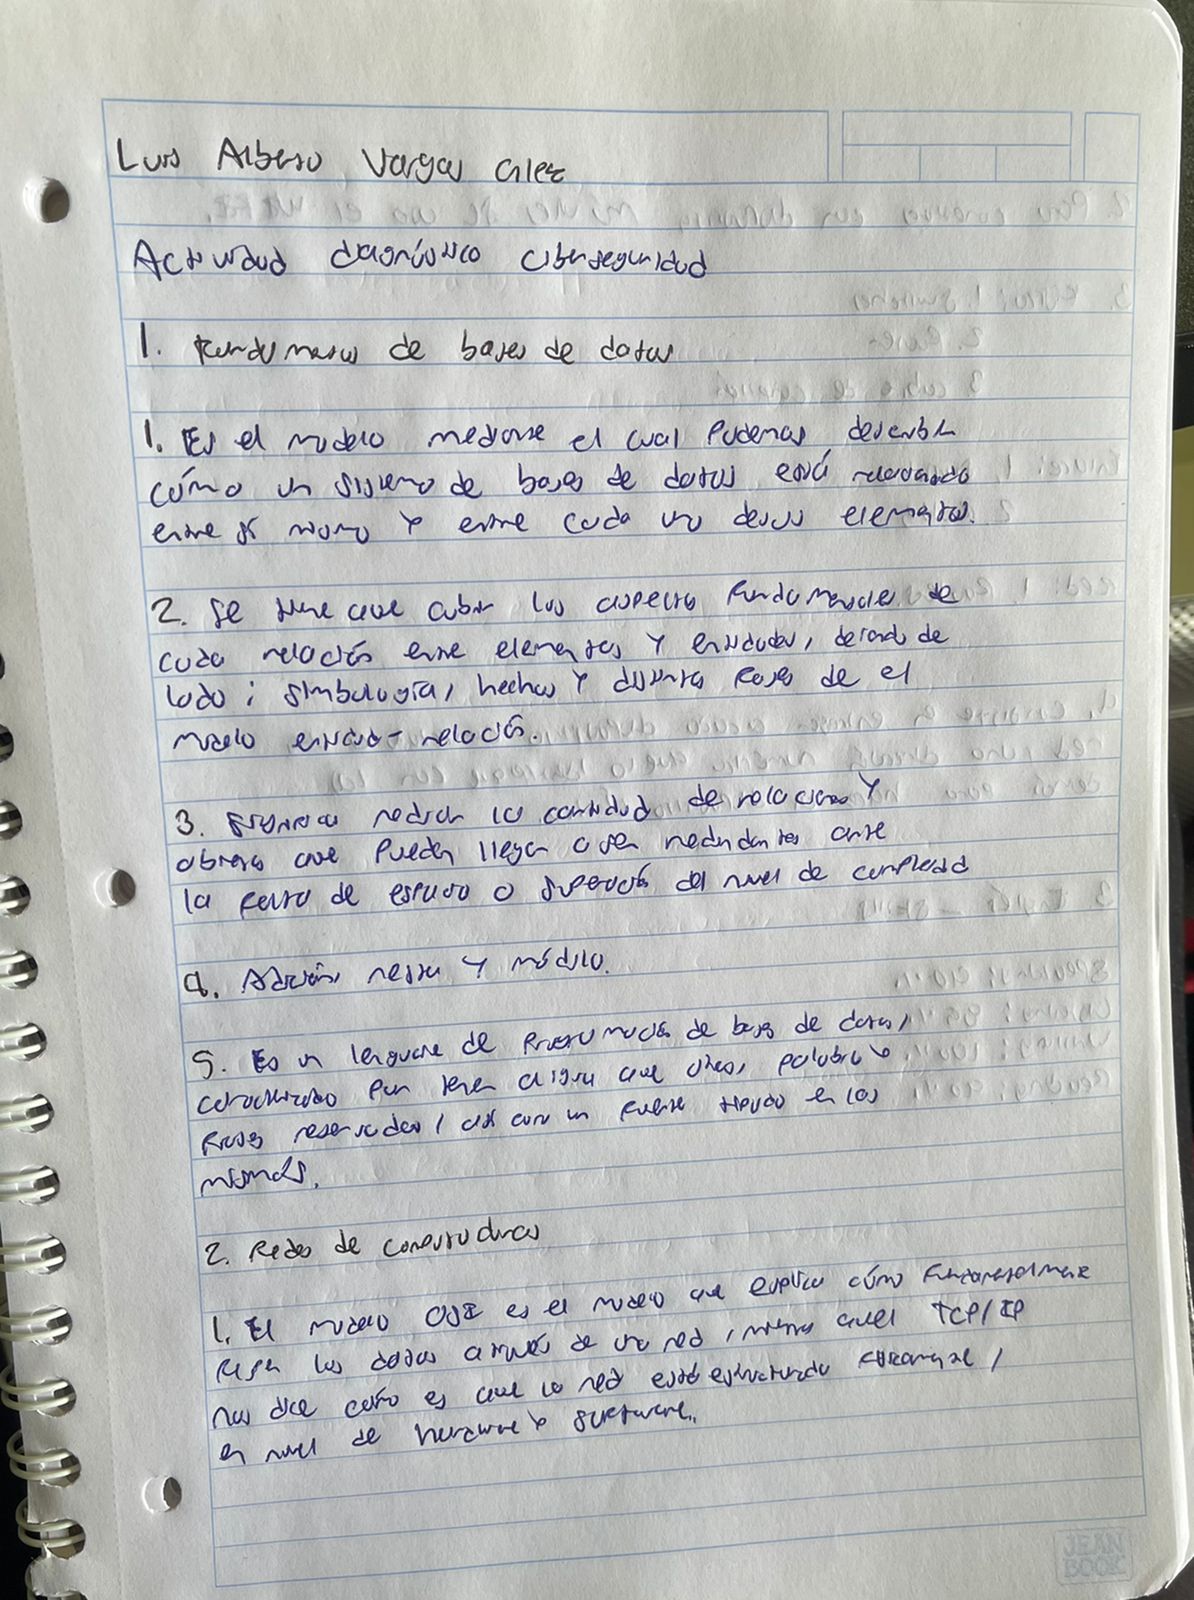 Luis Alberto Vargas Glez
Actividad diagnóstico ciberseguridad
1. Fundamentos de bases de datos
1. Es el modelo mediante el cual podemos describir
cómo un sistema de bases de datos está relacionado
entre sí mismo y entre cada uno de sus elementos.
2. Se tiene que cubrir los aspectos fundamentales de
cada relación entre elementos y entidades, dejando de
lado; simbología, hechos y distintas fases de el
modelo entidad-relación.
3. Significa reducir la cantidad de relaciones y
objetos que pueden llegar a ser redundantes ante
la falta de espacio o superación del nivel de complejidad
4. Adición, resta y módulo.
5. Es un lenguaje de programación de bases de datos,
caracterizado por tener palabras o
frases reservadas, así como un fuerte tipado en las
mismas.
2. Redes de computadoras
1. El modelo OSI es el modelo que explica cómo
los datos a través de una red, mientras que el TCP/IP
nos dice cómo es que la red está estructurada
en nivel de hardware y software.
JEAN
BOOK